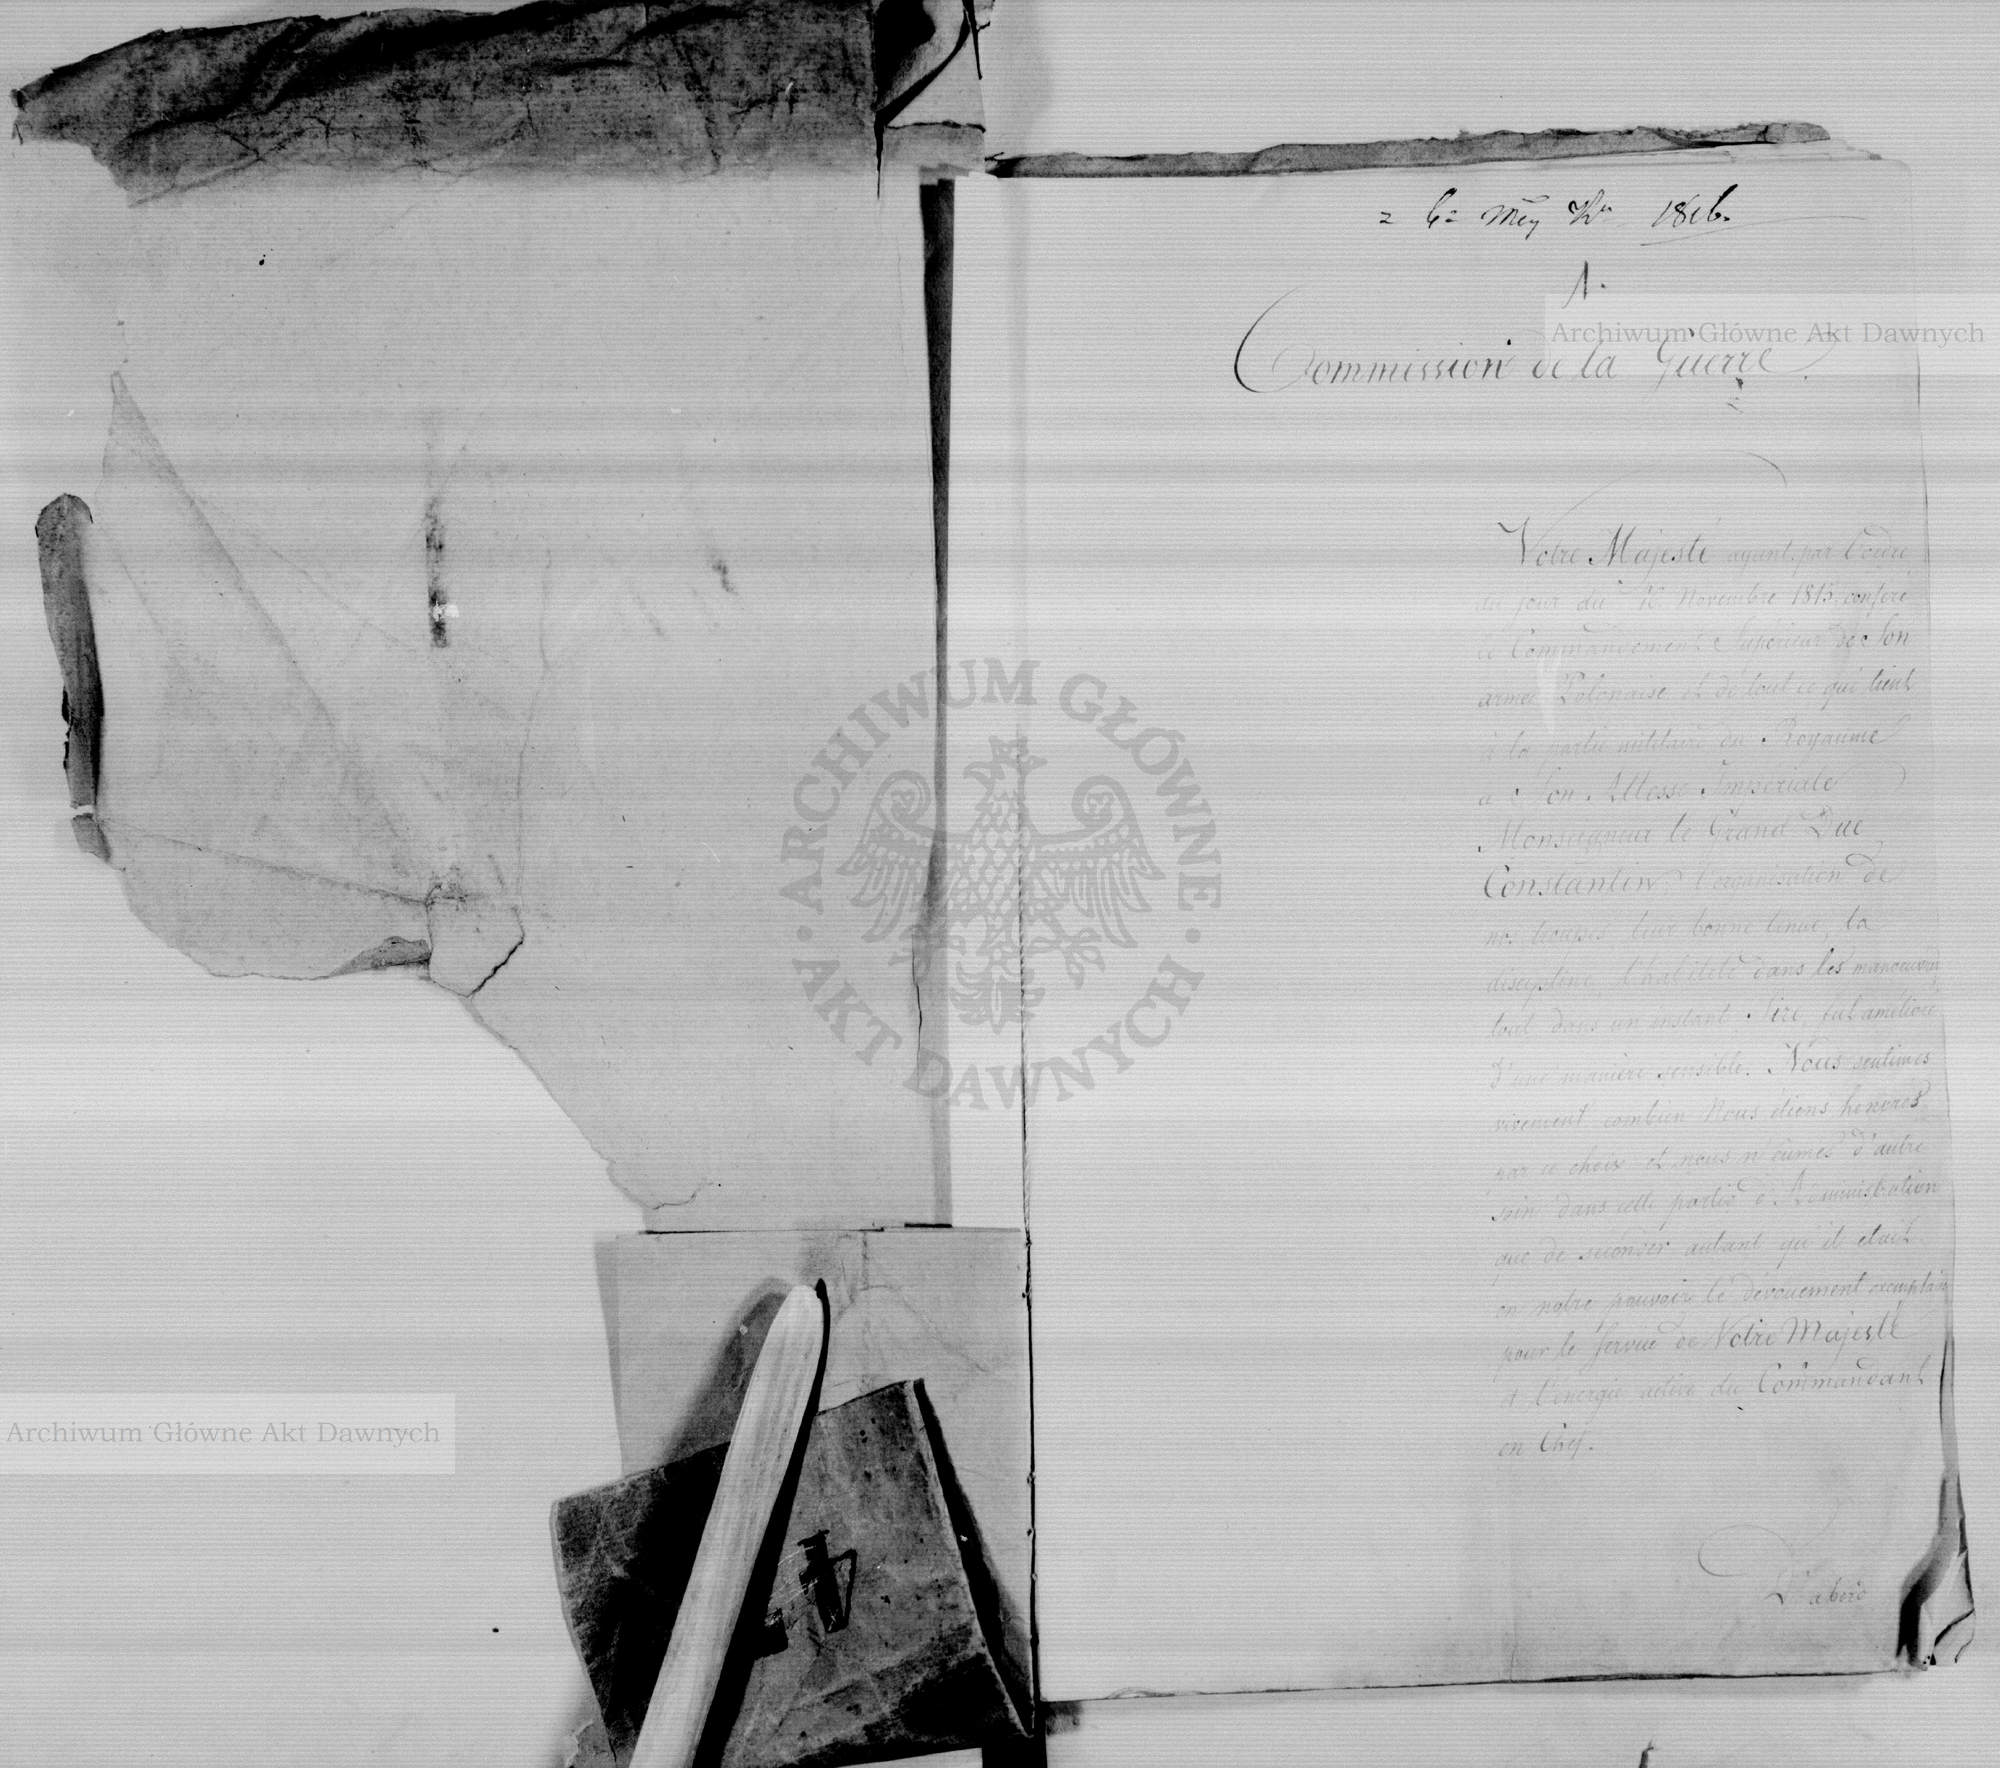 1816.
1.
Commission de la Guerre.
Votre Majesté ayant par l'ordre
du jour du 16. Novembre 1815. conféré
le Commandement Supérieur de Son
armée Polonaise et de tout ce qui tient
à la partie militaire du Royaume
à Son Altesse Impériale
Monseigneur le Grand Duc
Constantin, l'organisation de
nos troupes leur bonne tenue, la
discipline, l'habileté dans les manoeuvres
tout dans un instant Sire, fut amélioré
d'une manière sensible. Nous sentimes
vivement combien Nous étions honorés
par ce choix et nous n'eûmes d'autre
soin dans cette partie d'Administration
que de seconder autant qu'il était
en notre pouvoir le dévouement exemplaire
pour le Service de Votre Majesté
et l'énergie active du Commandant
en Chef.
D'abord
Archiwum Główne Akt Dawnych
ARCHIWUM GŁÓWNE · AKT DAWNYCH ·
Archiwum Główne Akt Dawnych